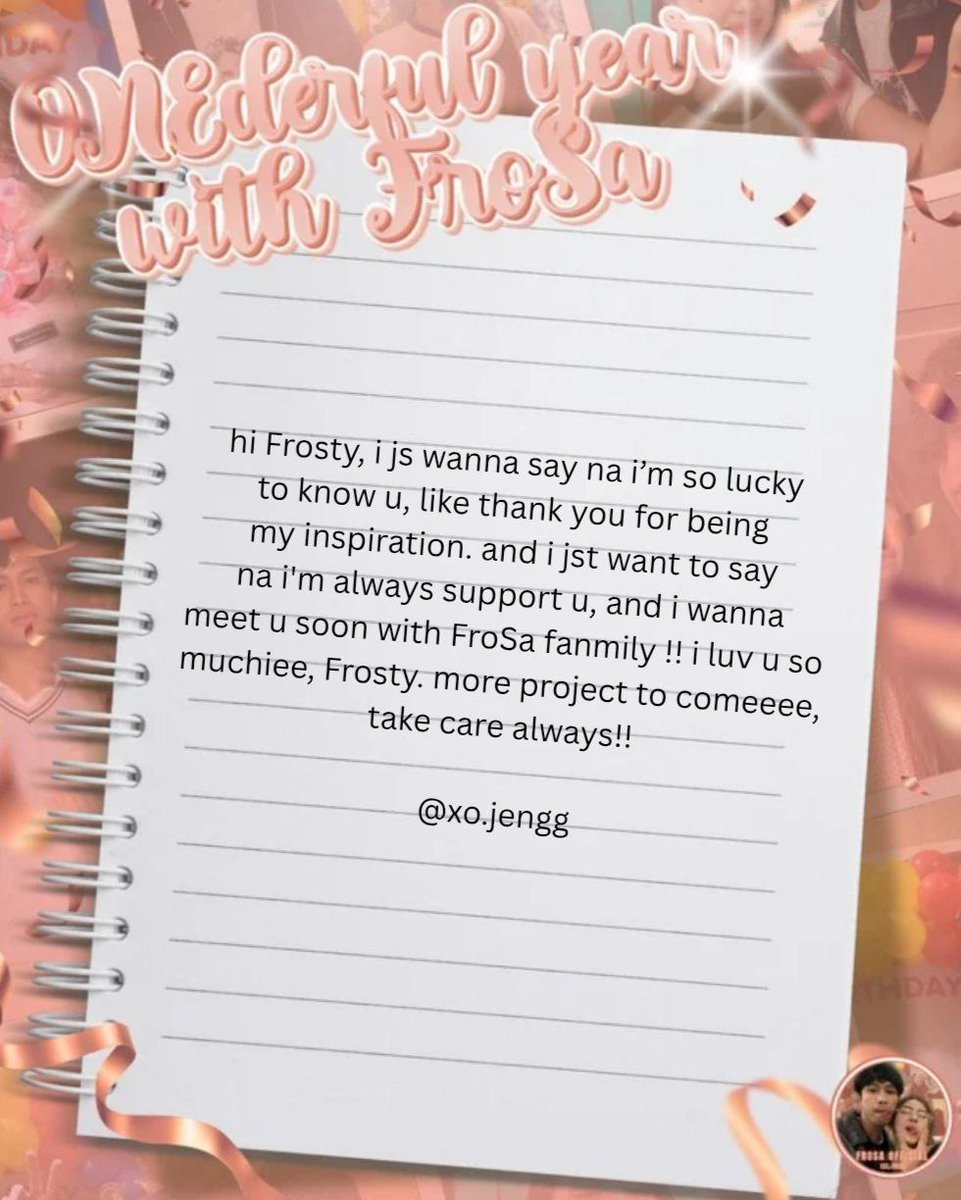 ONEderful year
with FroSa
hi Frosty, i js wanna say na i’m so lucky
to know u, like thank you for being
my inspiration. and i jst want to say
na i'm always support u, and i wanna
meet u soon with FroSa fanmily !! i luv u so
muchiee, Frosty. more project to comeeee,
take care always!!
@xo.jengg
THDAY
FROSA OFFICIAL